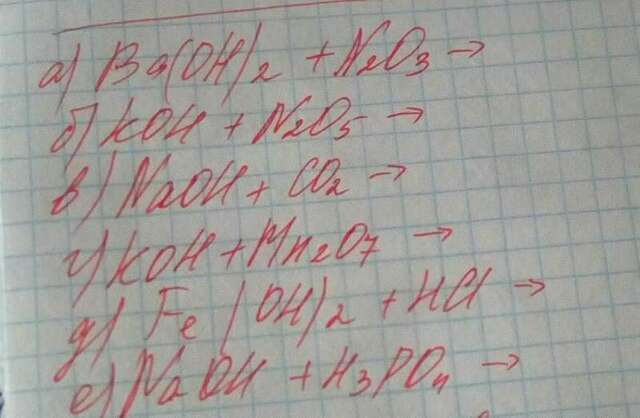 а) Ba(OH)2 + N2O3 →
б) KOH + N2O5 →
в) NaOH + CO2 →
г) KOH + Mn2O7 →
д) Fe(OH)2 + HCl →
е) NaOH + H3PO4 →